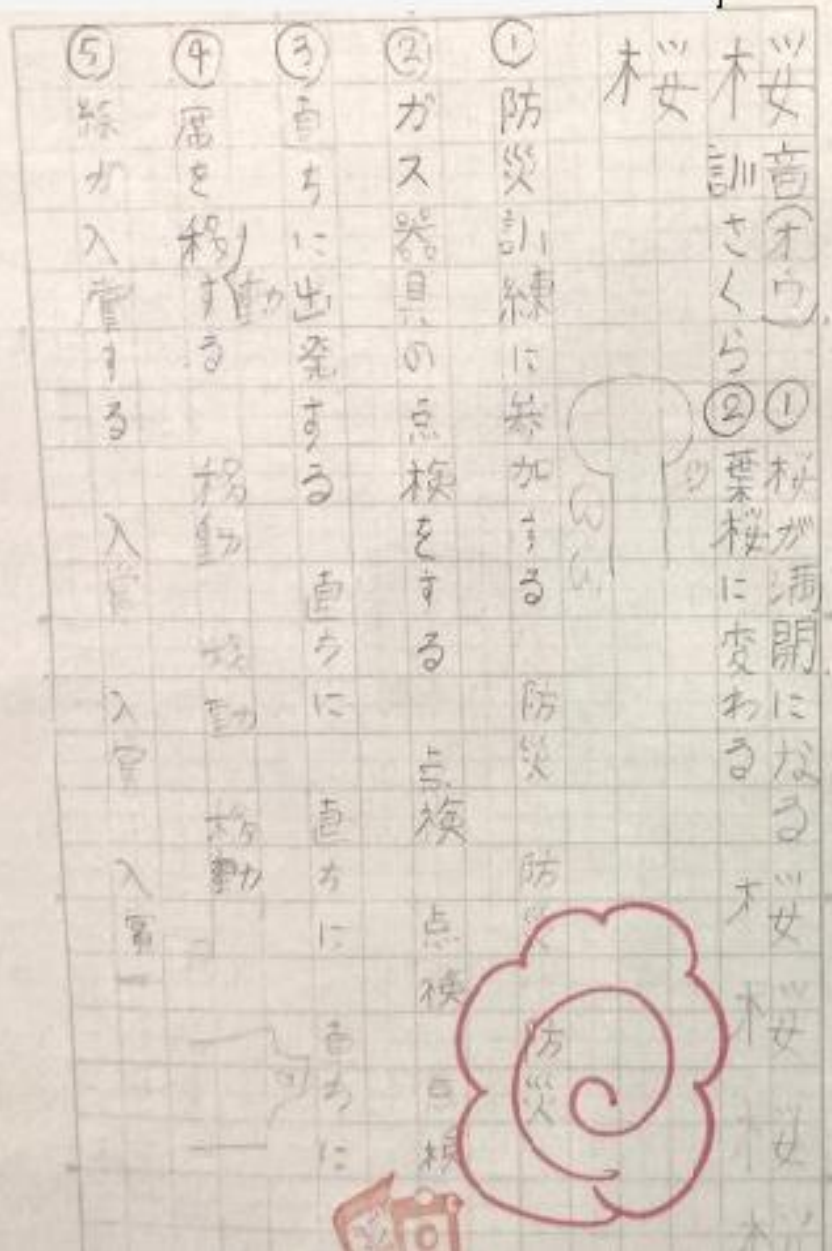 桜 音(オウ) ①桜が満開になる 桜 桜 桜 桜
訓さくら ②葉桜に変わる
桜
①防災訓練に参加する 防災 防災 防災
②ガス器具の点検をする 点検 点検 点検
③直ちに出発する 直ちに 直ちに 直ちに
④席を移動する 移動 移動 移動
⑤絵が入賞する 入賞 入賞 入賞